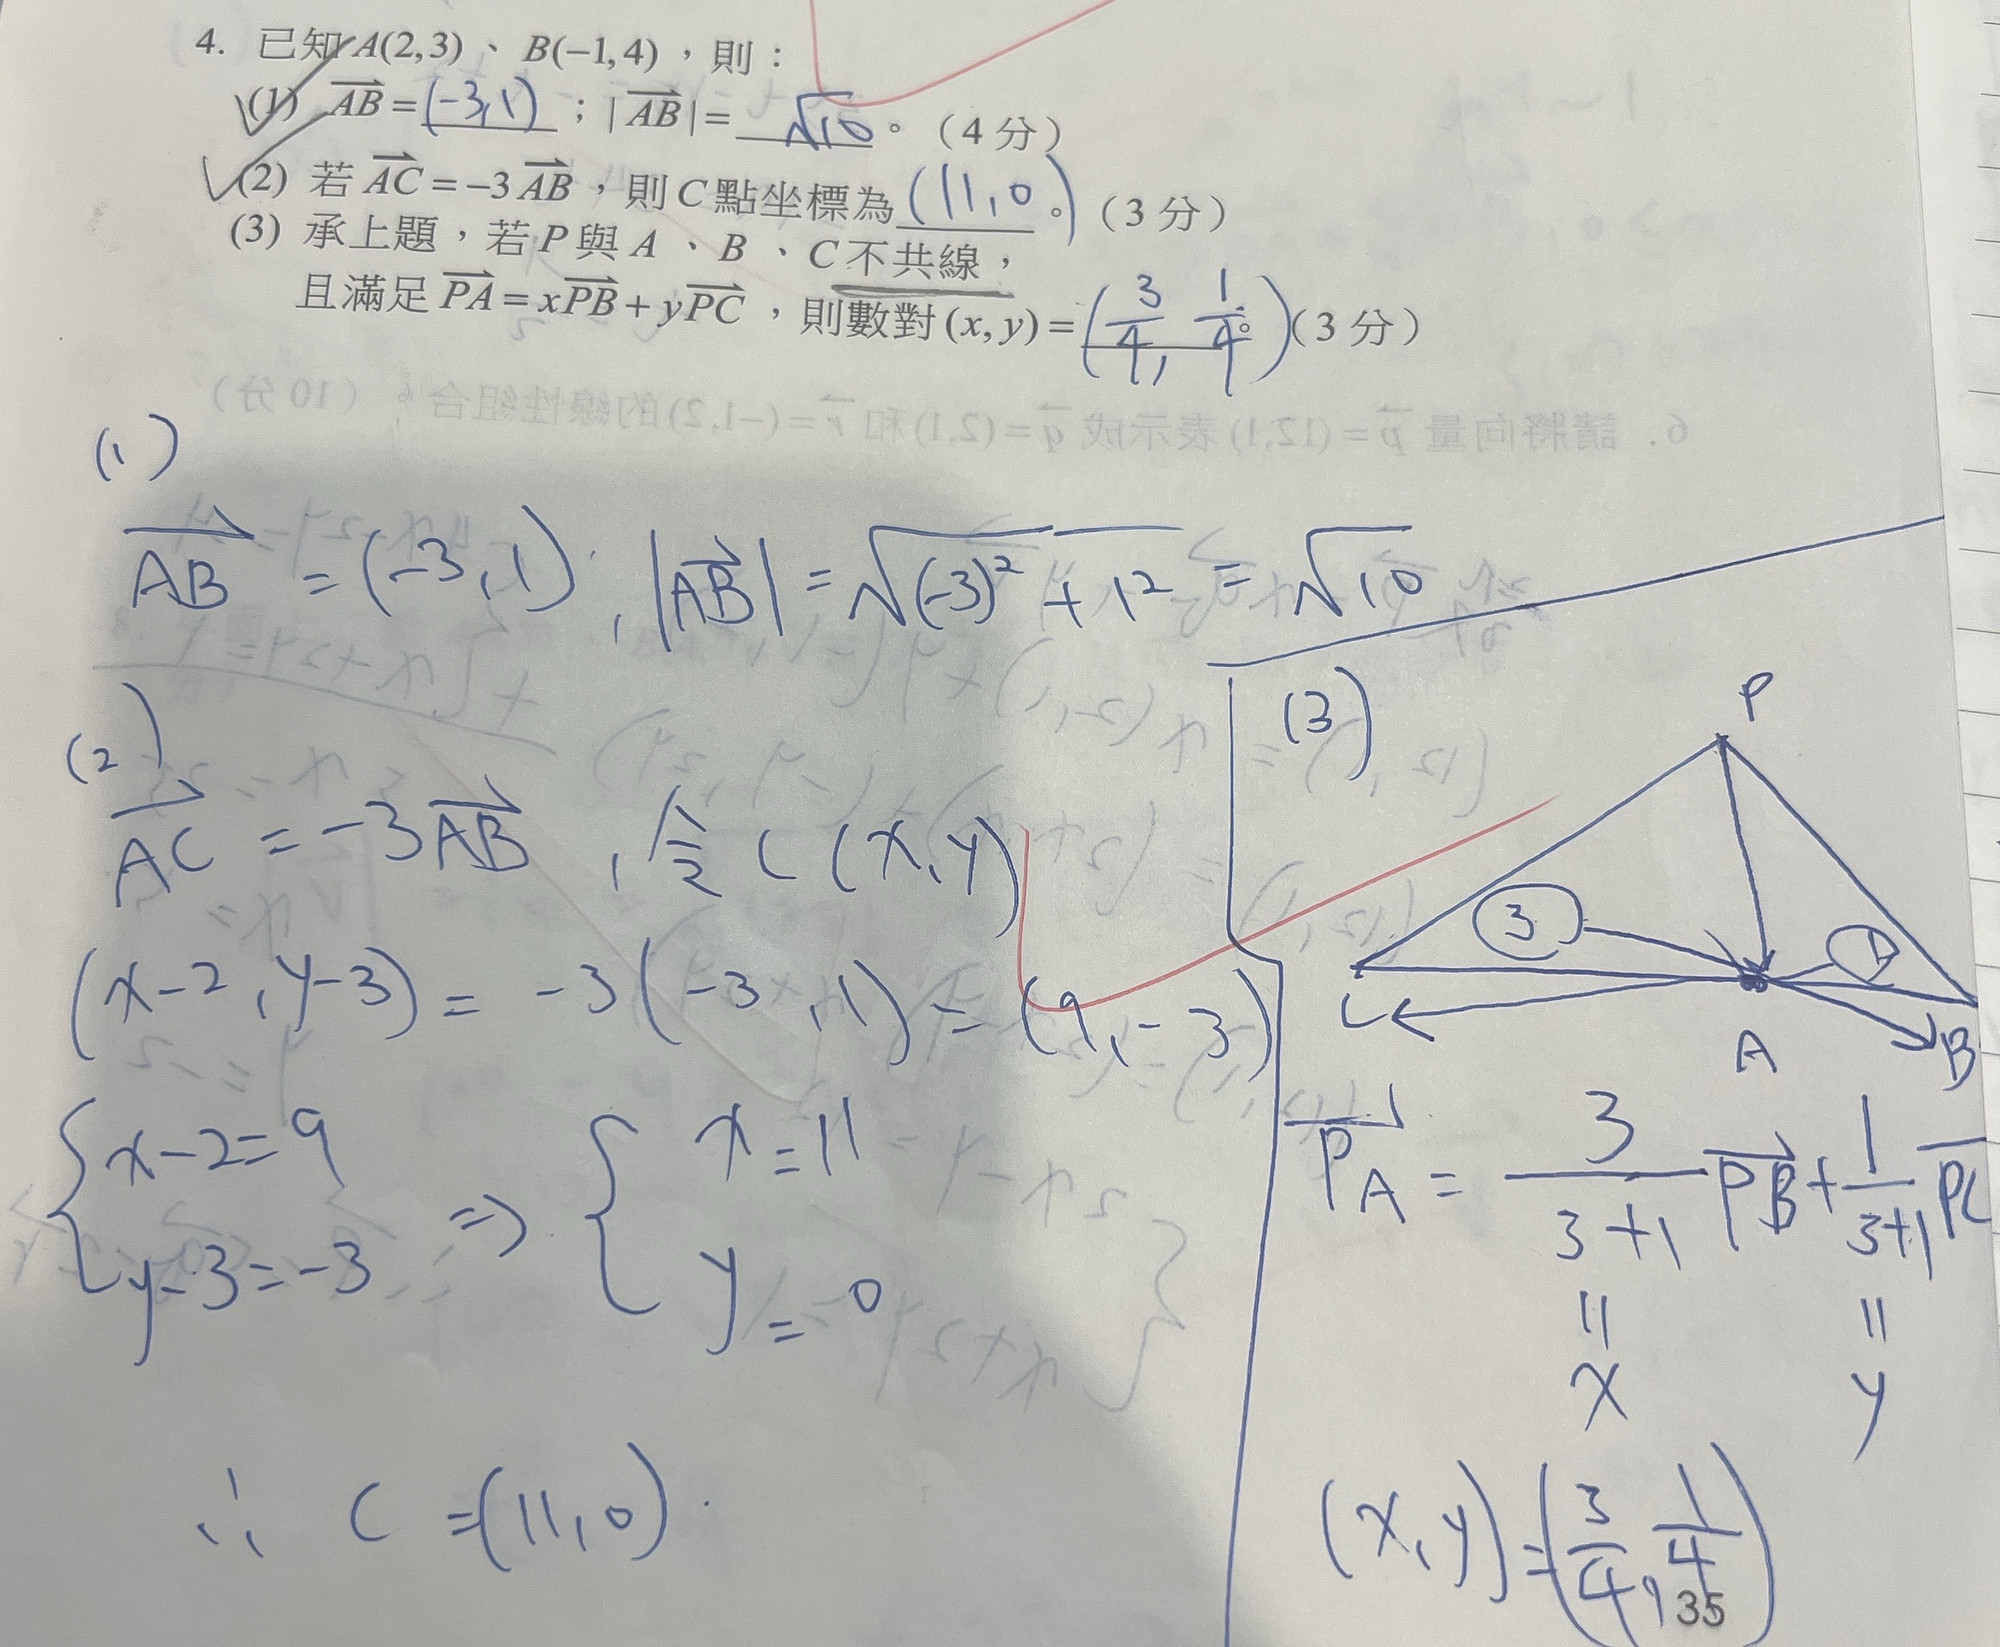 4. 已知 A(2,3)、B(−1,4),則:
(1) AB = (-3,1) ; |AB| = √10 。(4 分)
(2) 若 AC = −3 AB,則 C 點坐標為 (11,0) 。(3 分)
(3) 承上題,若 P 與 A、B、C 不共線,
且滿足 PA = xPB + yPC,則數對 (x, y) = (3/4, 1/4) 。(3 分)
6. 請將向量 p = (12,1) 表示成 q = (2,1) 和 r = (−1,2) 的線性組合。(10 分)
(1)
AB = (-3,1), |AB| = √(-3)² + 1² = √10
(2)
AC = -3AB, 令 C(x,y)
(x-2, y-3) = -3(-3,1) = (9,-3)
{ x-2=9
y-3=-3 ⇒ { x=11
y=0
∴ C = (11,0).
(3)
P
3 1
C A B
PA = 3/(3+1) PB + 1/(3+1) PC
= x = y
(x,y) = (3/4, 1/4)
35